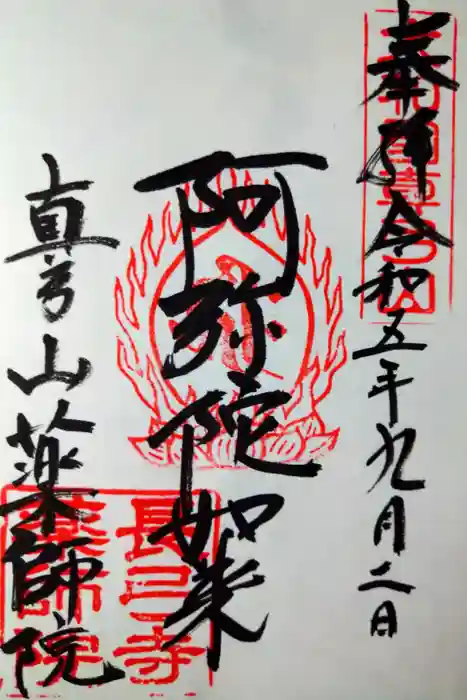 奉拝 令和五年九月二日
阿弥陀如来
真弓山薬師院
長弓寺
薬師院